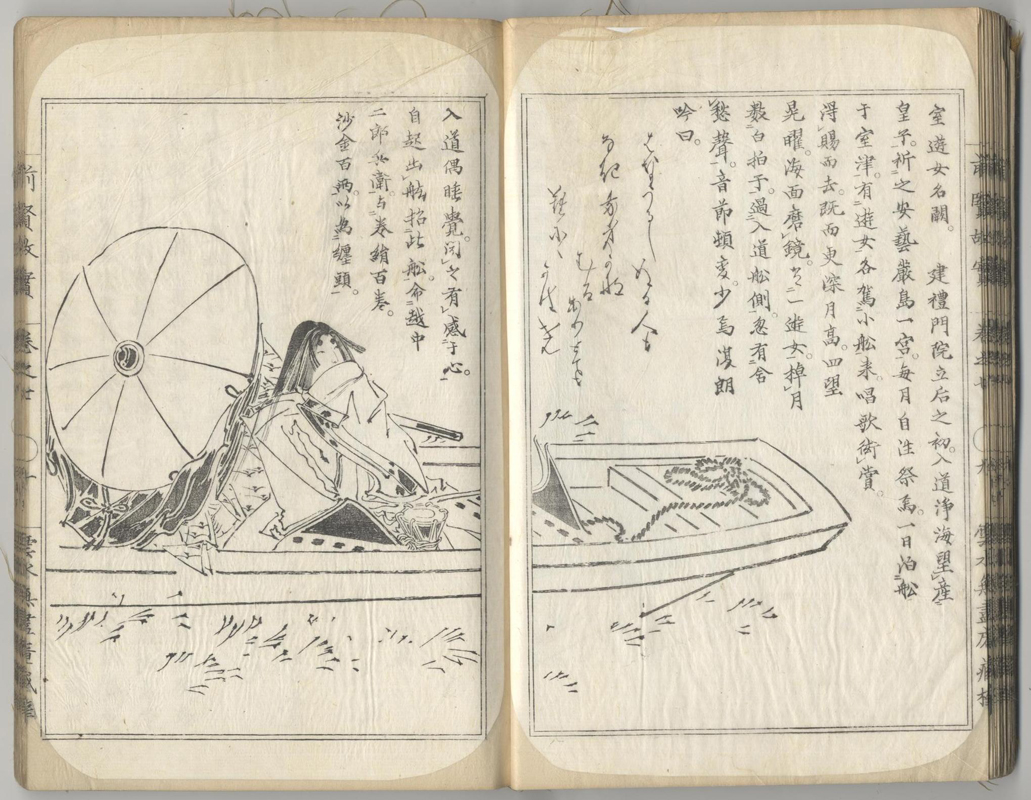 室遊女名闕。 建禮門院立后之初。入道淨海望產
皇子。祈之安藝嚴島一宮。每月自往祭焉。一日泊舩
于室津。有遊女各駕小舩来。唱歌衒賞。
得賜而去。既而更深月高。四望
晃曜。海面磨鏡。一遊女掉月
白拍子。過入道舩側。忽有含
愁聲。音節頓変。少焉朗
吟曰。
はなうるしぬる人も
むろ
ありとても
入道偶睡覺。聞之有感于心。
自起出舷招此舩。命越中
二郎兵衛。与巻絹百巻。
沙金百両。以為纏頭。
前賢故實
雲水無盡庵藏梓